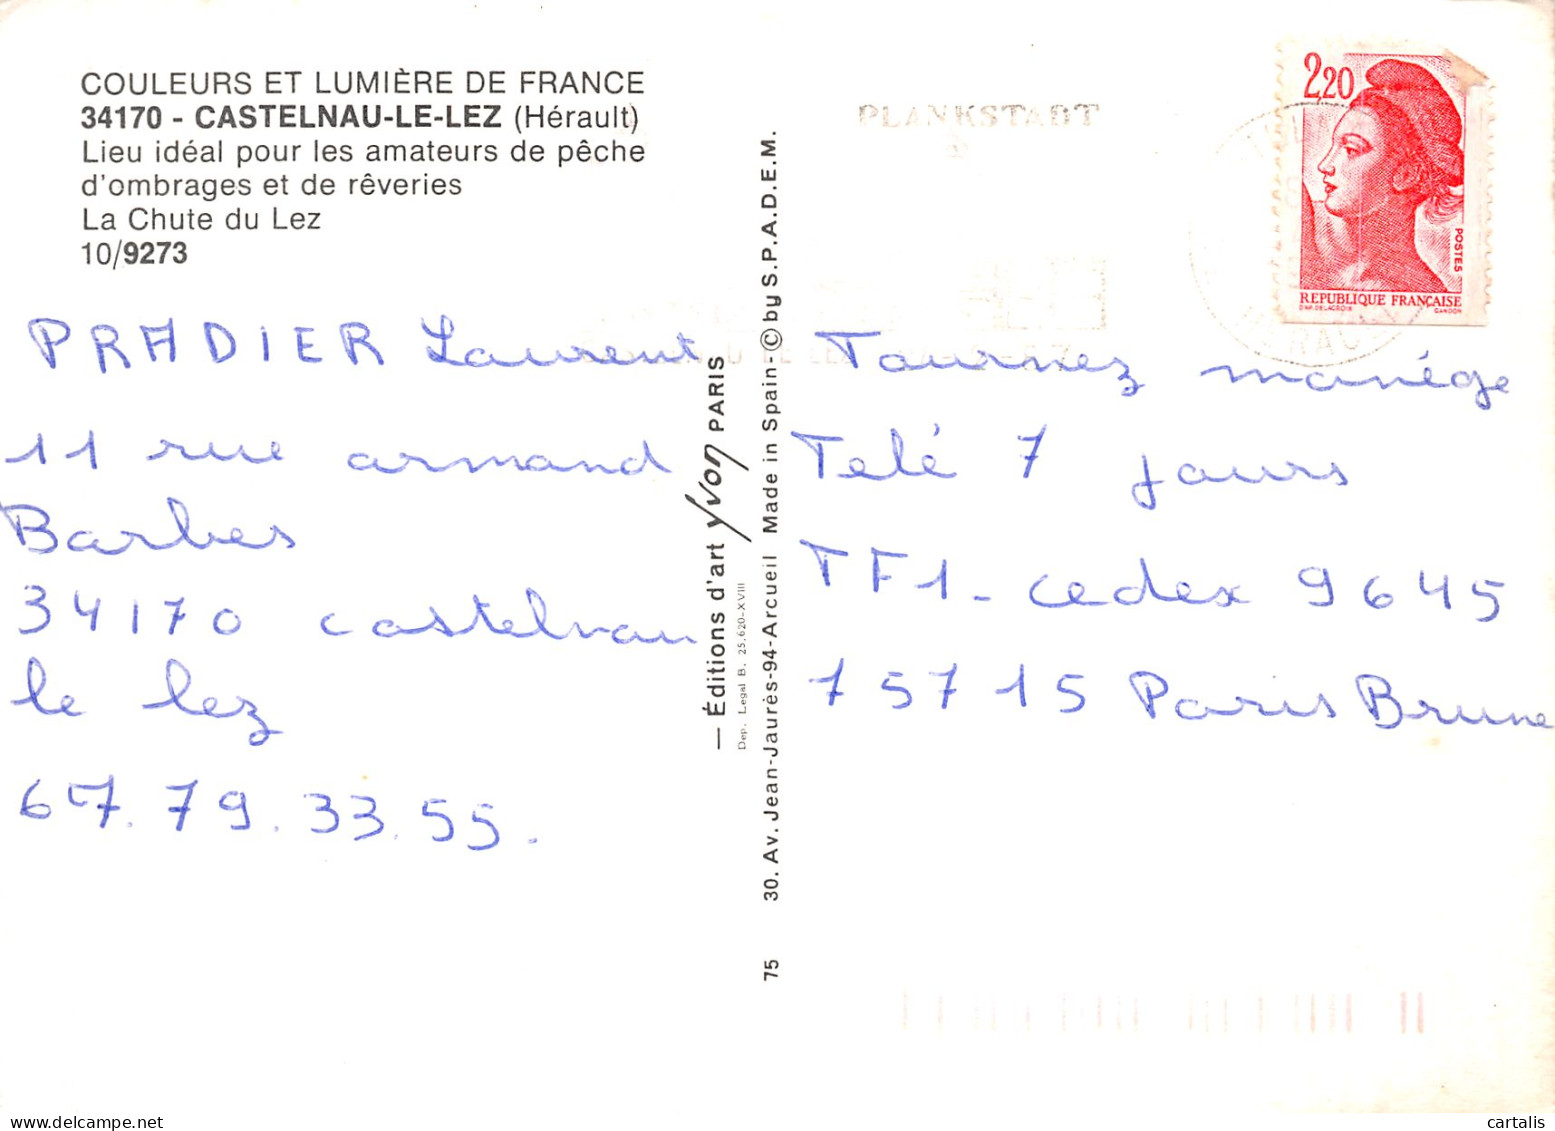 COULEURS ET LUMIÈRE DE FRANCE
34170 - CASTELNAU-LE-LEZ (Hérault)
Lieu idéal pour les amateurs de pêche
d'ombrages et de rêveries
La Chute du Lez
10/9273
PRADIER Laurent
11 rue armand
Barbes
34170 castelnau
le lez
67.79.33.55.
— Éditions d'art yvon PARIS
Dep. Legal B. 25.620-XVIII
75 30. Av. Jean-Jaurès-94-Arcueil Made in Spain - © by S.P.A.D.E.M.
PLANKSTADT
2,20
POSTES
REPUBLIQUE FRANÇAISE
D'AP. DELACROIX GANDON
Tournez manége
Telé 7 jours
TF1 - cedex 9645
75715 Paris Brune
cartalis